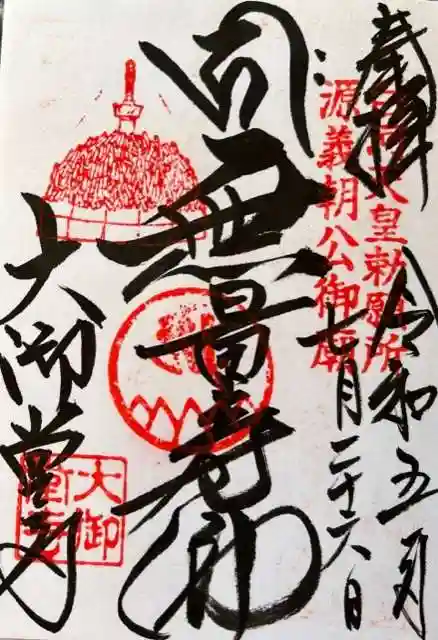 奉拝
令和五年
七月二十六日
白河天皇勅願所
源義朝公御廟
無量寿佛
大御堂寺
大御
堂寺